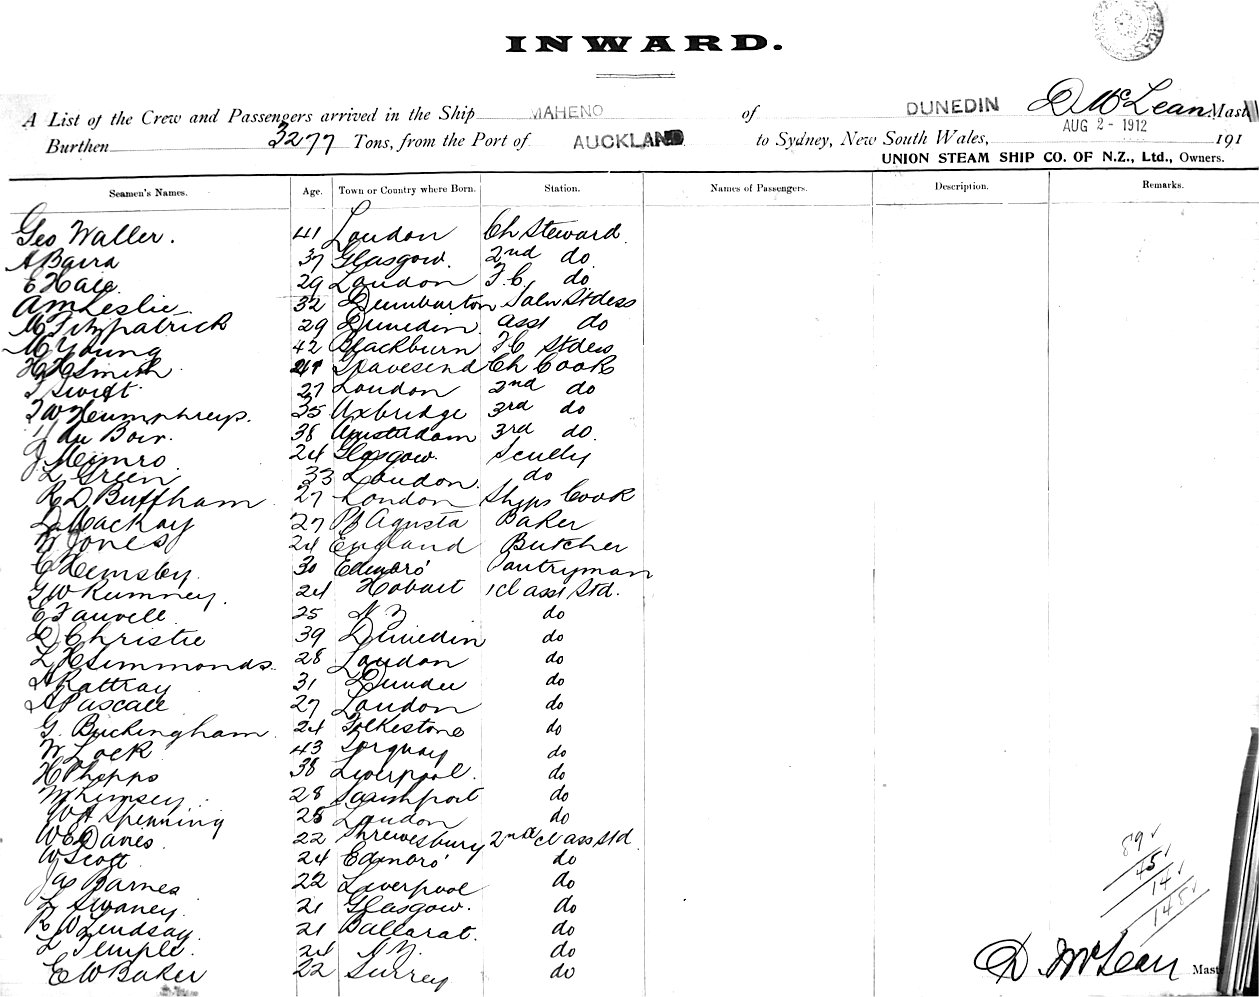 INWARD.
A List of the Crew and Passengers arrived in the Ship MAHENO of DUNEDIN D McLean Mast
Burthen 3277 Tons, from the Port of AUCKLAND to Sydney, New South Wales, AUG 2 - 1912 191
UNION STEAM SHIP CO. OF N.Z., Ltd., Owners.
Seamen's Names. Age. Town or Country where Born. Station. Names of Passengers. Description. Remarks.
Geo Waller. 41 London Ch Steward
A Barra 37 Glasgow. 2nd do
E Hall. 29 London F.C. do
A M Leslie. 32 Dumbarton Saln Stdess
M Fitzpatrick 29 Dunedin asst do
M Young 42 Blackburn FC Stdess
H H Smith Gravesend Ch Cook
T Swift 27 London 2nd do
T W Humphreys. 35 Uxbridge 3rd do
J du Boir. 38 Amsterdam 3rd do.
J Munro 24 Glasgow. Scully
L Green 33 London. do
R D Buffham 27 London Ships Cook
D Mackay 27 Pt Agusta Baker
W Jones 24 England Butcher
C Hemsby. 30 Edinbro' Pantryman
G W Rumney. 24 Hobart 1 Class Std.
E Fauvell 25 N Z do
D Christie 39 Dunedin do
L H Simmonds. 28 London do
A Rattray 31 Dundee do
A Pascall 27 London do
G. Buckingham. 24 Folkestone do
W Lock 43 Torquay do
H Phipps 38 Liverpool. do
M Limsey. 28 Southport do
W A Spenning 25 London do
W E Davies 22 Shrewsbury 2nd class Std
W Scott 24 Edinbro' do
Jas Barnes 22 Liverpool do
L Swaney. 21 Glasgow. do
R W Lindsay. 21 Ballarat. do
L Temple. 24 N Z. do
E W Baker 22 Surrey do
89
45
14
148
D. McLean Mast